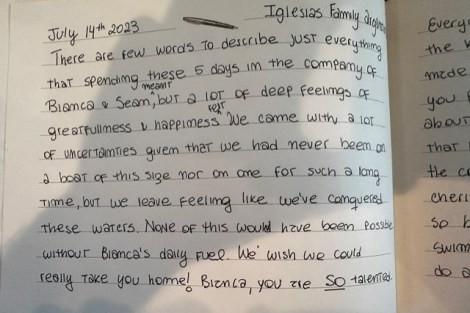 July 14th 2023
Iglesias Family
There are few words to describe just everything
that spending these 5 days in the company of
meant
Bianca & Sean, but a lot of deep feelings of
felt
greatfullness & happiness. We came with a lot
of uncertainties given that we had never been on
a boat of this size nor on one for such a long
time, but we leave feeling like we've conquered
these waters. None of this would have been possible
without Bianca's daily fuel. We wish we could
really take you home! Bianca, you are SO talented.
Every
the
made
you
about
that
the
cheri
so
swim
do a